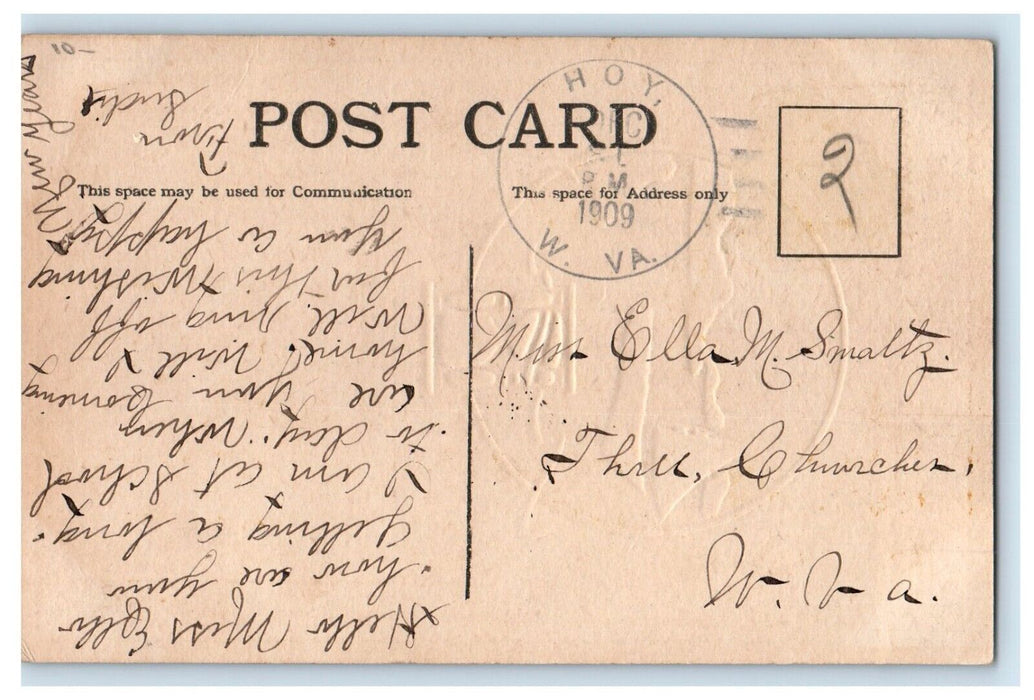 10-
POST CARD
This space may be used for Communication
This space for Address only
HOY,
DEC
PM
1909
W. VA.
2
Miss Ella M. Smaltz.
Three, Churches,
W. Va.
Hello Miss Ella
how are you
Getting a long.
I am at School
to day. When
are you Coming
home. Will I
Will ring off
for this Wishing
you a happy
New Years
from